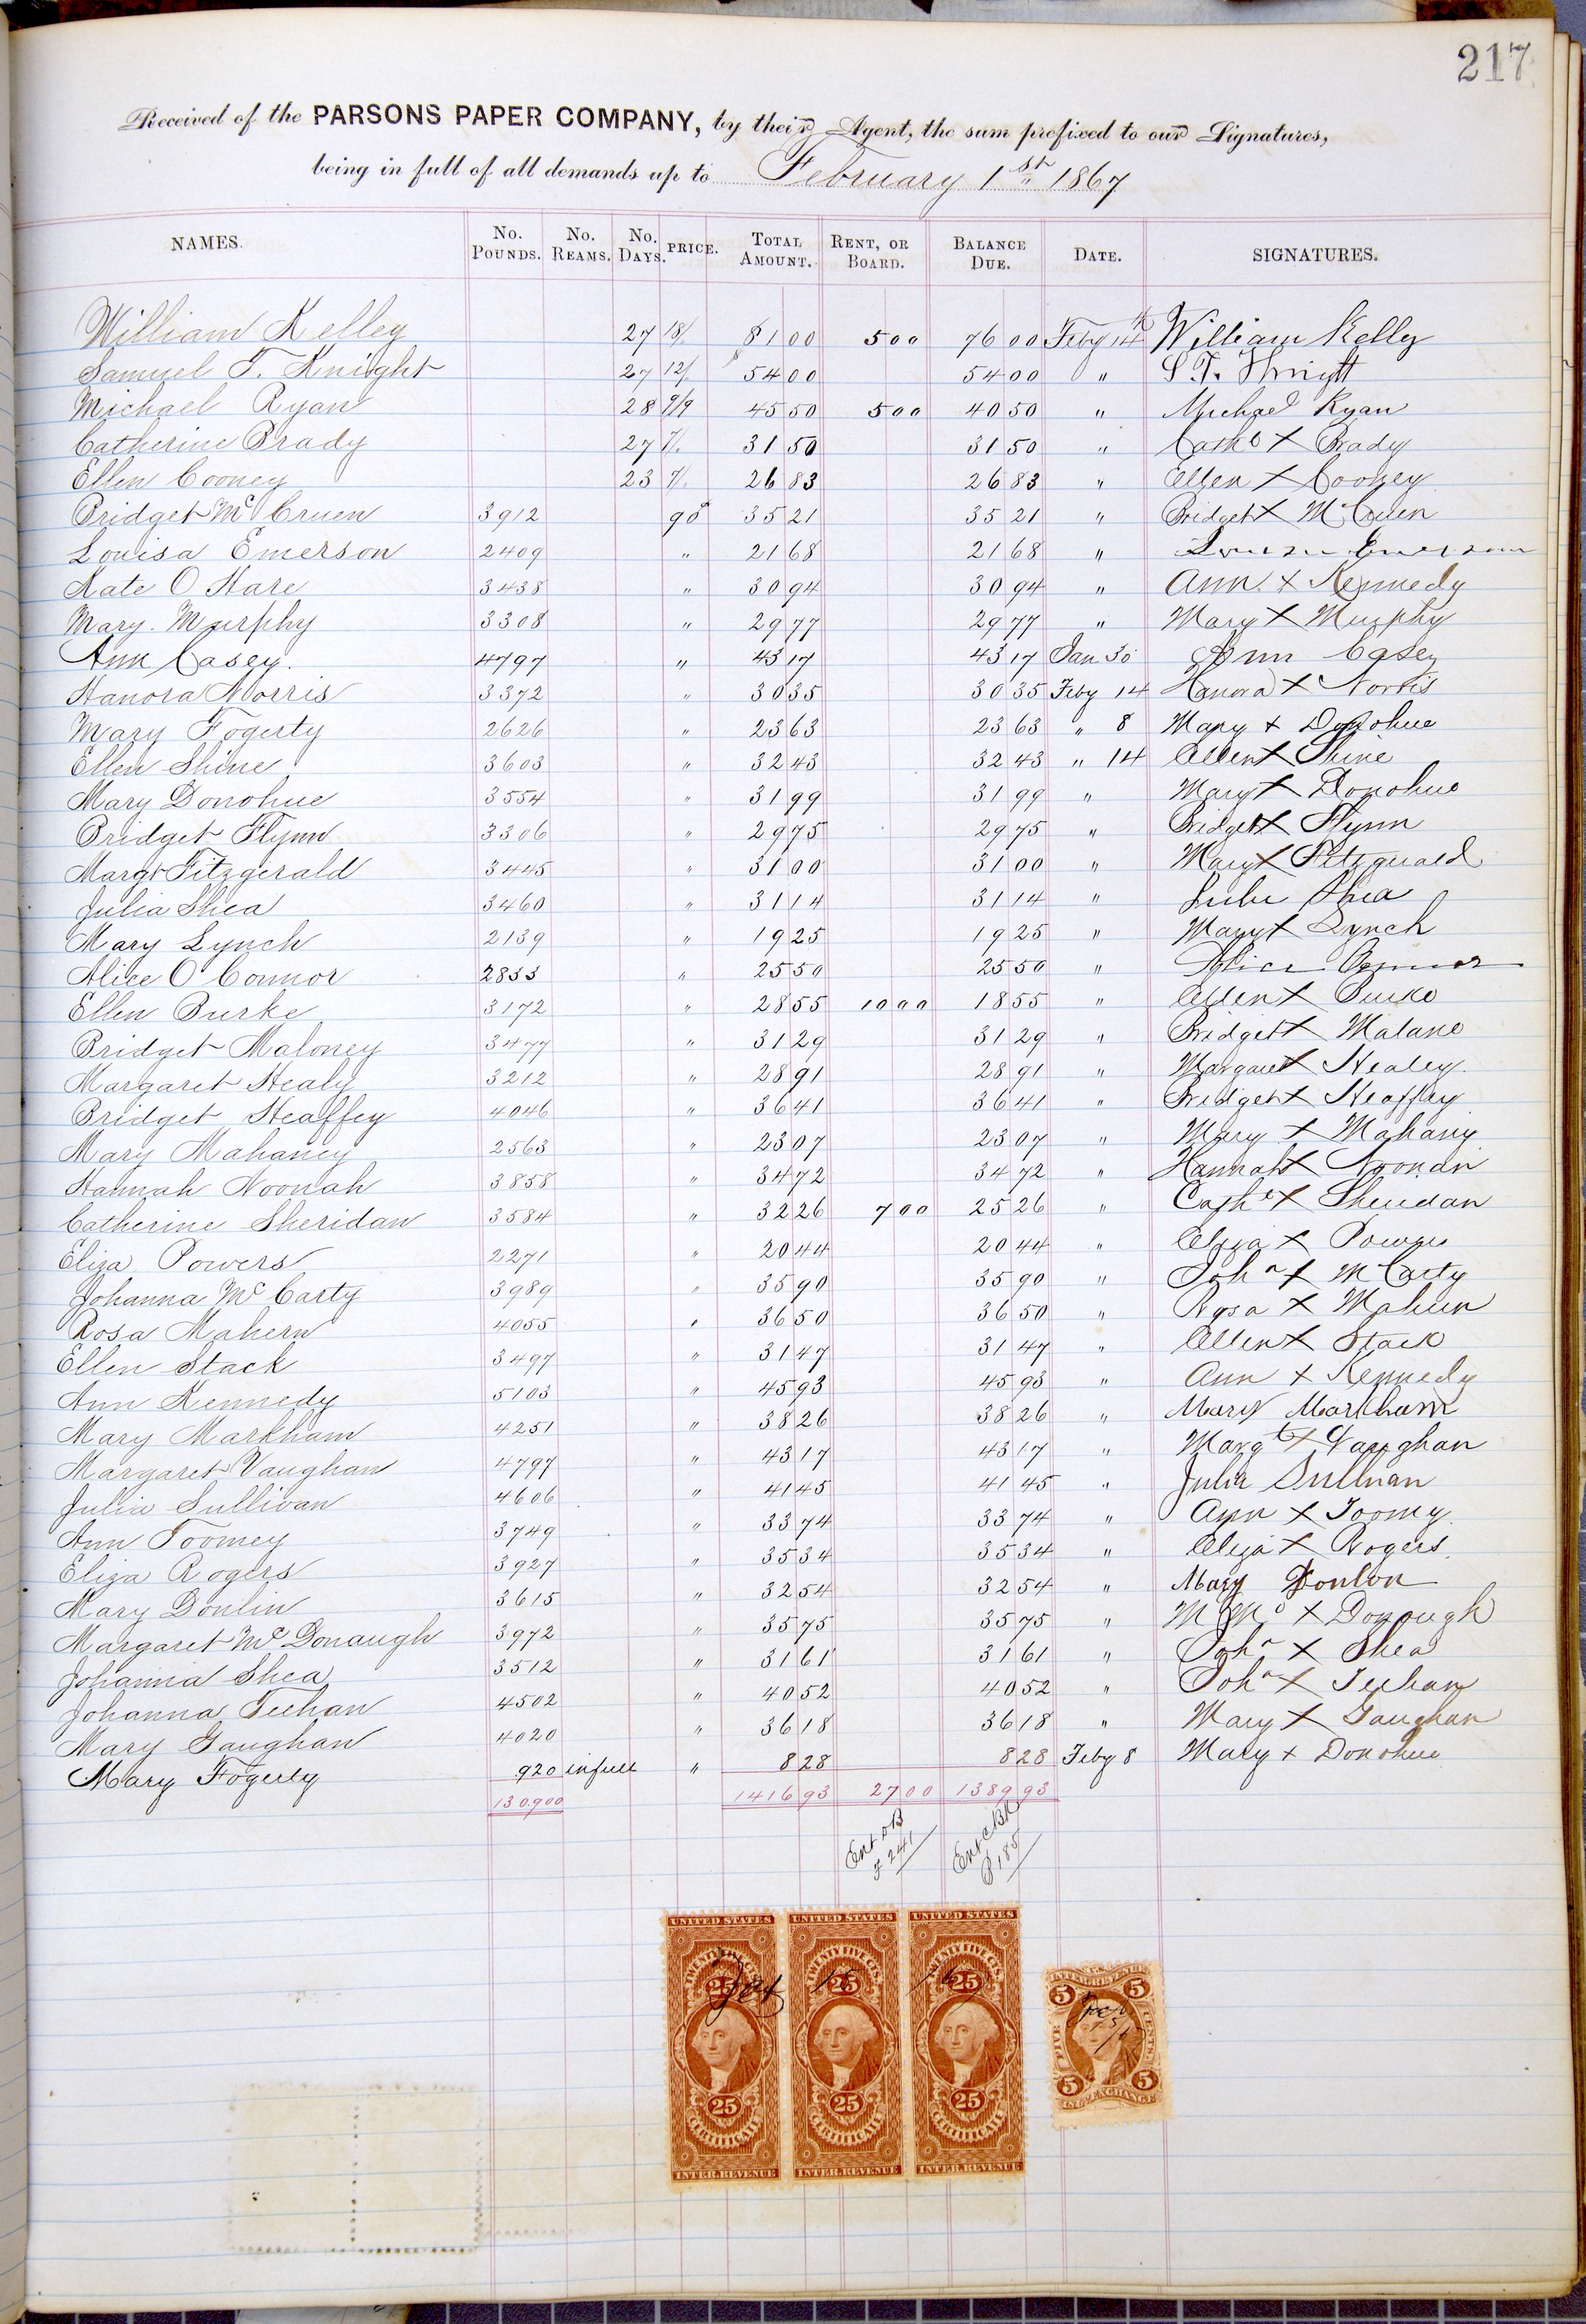 217
Received of the PARSONS PAPER COMPANY, by their Agent, the sum prefixed to our Signatures,
being in full of all demands up to February 1st 1867
NAMES. No. Pounds. No. Reams. No. Days. PRICE. Total Amount. Rent, or Board. Balance Due. Date. SIGNATURES.
William Kelley 27 18/ 81 00 5 00 76 00 Feby 14th William Kelly
Samuel F. Knight 27 12/ 54 00 54 00 " S. F. Knight
Michael Ryan 28 9/9 45 50 5 00 40 50 " Michael Ryan
Catherine Brady 27 7/. 31 50 31 50 " Cathe X Brady
Ellen Cooney 23 7/. 26 83 26 83 " Ellen X Cooney
Bridget Mc Cruen 3912 90c 35 21 35 21 " Bridget X McCruen
Louisa Emerson 2409 " 21 68 21 68 " Louisa Emerson
Kate O Hare 3438 " 30 94 30 94 " Ann X Kennedy
Mary Murphy 3308 " 29 77 29 77 " Mary X Murphy
Ann Casey. 4797 " 43 17 43 17 Jan 30 Ann Casey
Hanora Norris 3372 " 30 35 30 35 Feby 14 Hanora X Norris
Mary Fogerty 2626 " 23 63 23 63 " 8 Mary X Donohue
Ellen Shine 3603 " 32 43 32 43 " 14 Ellen X Shine
Mary Donohue 3554 " 31 99 31 99 " Mary X Donohue
Bridget Flynn 3306 " 29 75 29 75 " Bridget X Flynn
Margt Fitzgerald 3445 " 31 00 31 00 " Mary X Fitzguald
Julia Shea 3460 " 31 14 31 14 " Julia Shea
Mary Lynch 2139 " 19 25 19 25 " Mary X Lynch
Alice O'Connor 2833 " 25 50 25 50 " Alice Connor
Ellen Burke 3172 " 28 55 10 00 18 55 " Ellen X Burke
Bridget Maloney 3477 " 31 29 31 29 " Bridget X Malane
Margaret Healy 3212 " 28 91 28 91 " Margaret X Healey.
Bridget Heaffey 4046 " 36 41 36 41 " Bridget X Heaffey
Mary Mahaney 2563 " 23 07 23 07 " Mary X Mahany
Hannah Noonah 3858 " 34 72 34 72 " Hannah X Noonan
Catherine Sheridan 3584 " 32 26 7 00 25 26 " Cathe X Sheridan
Eliza Powers 2271 " 20 44 20 44 " Eliza X Powers
Johanna Mc Carty 3989 " 35 90 35 90 " Joha X McCarty
Rosa Mahern 4055 " 36 50 36 50 " Rosa X Mahern
Ellen Stack 3497 " 31 47 31 47 " Ellen X Stack
Ann Kennedy 5103 " 45 93 45 93 " Ann X Kennedy
Mary Markham 4251 " 38 26 38 26 " Mary Markham
Margaret Vaughan 4797 " 43 17 43 17 " Margt X Vaughan
Julia Sullivan 4606 " 41 45 41 45 " Julia Sullivan
Ann Toomey 3749 " 33 74 33 74 " Ann X Toomy
Eliza Rogers 3927 " 35 34 35 34 " Eliza X Rogers
Mary Donlin 3615 " 32 54 32 54 " Mary Donlon
Margaret Mc Donaugh 3972 " 35 75 35 75 " M Mc X Donough
Johanna Shea 3512 " 31 61 31 61 " Joha X Shea
Johanna Teehan 4502 " 40 52 40 52 " Joha X Teehan
Mary Gaughan 4020 " 36 18 36 18 " Mary X Gaughan
Mary Fogerty 920 in full " 8 28 8 28 Feby 8 Mary X Donohue
130.900 1416 93 27 00 1389 93
Ent DB F 241 Ent CBk P 185
UNITED STATES UNITED STATES UNITED STATES
TWENTY FIVE CTS. TWENTY FIVE CTS. TWENTY FIVE CTS.
25 25 25
25 25 25
CERTIFICATE CERTIFICATE CERTIFICATE
INTER. REVENUE INTER. REVENUE INTER. REVENUE
INTER. REVENUE
5 5
FIVE CENTS
5 5
EXCHANGE